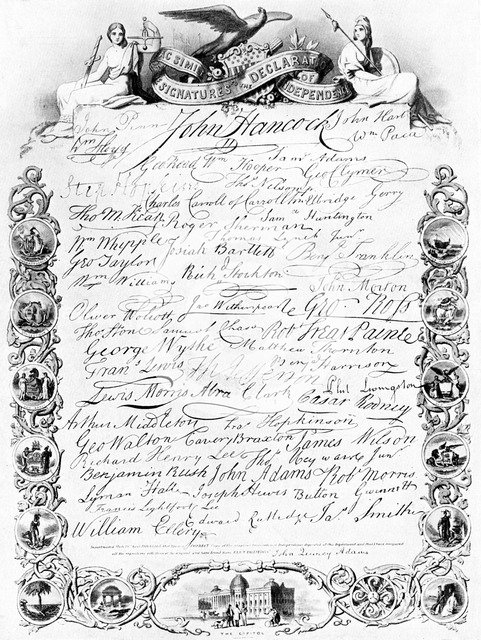 FAC SIMILE
OF THE
SIGNATURES TO THE DECLARATION OF INDEPENDENCE
John Penn John Hancock John Hart
Wm Floyd Wm Paca
Geo Read Wm Hooper Sam Adams Geo Clymer
Step Hopkins Thos Nelson jr
Charles Carroll of Carrollton Elbridge Gerry
Tho M:Kean Roger Sherman Sam Huntington
Wm Whipple Thomas Lynch Junr Benj Franklin
Geo Taylor Josiah Bartlett
Wm Williams Richd Stockton John Morton
Oliver Wolcott Jno Witherspoon Geo Ross
Samuel Chase Robt Treat Paine
George Wythe Matthew Thornton
Frans Lewis Benj Harrison
Lewis Morris Abra Clark Phil Livingston
Cæsar Rodney
Arthur Middleton Fras Hopkinson
Geo Walton Carter Braxton James Wilson
Richard Henry Lee Thos Heyward Junr
Benjamin Rush John Adams Robt Morris
Lyman Hall Joseph Hewes Button Gwinnett
Francis Lightfoot Lee
William Ellery Edward Rutledge Jas Smith
John Quincy Adams
THE CAPITOL